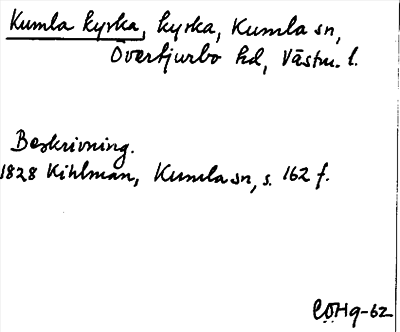 Kumla kyrka, kyrka, Kumla sn,
Övertjurbo hd, Västm. l.
Beskrivning.
1828 Kihlman, Kumla sn, s. 162 f.
COHg-62